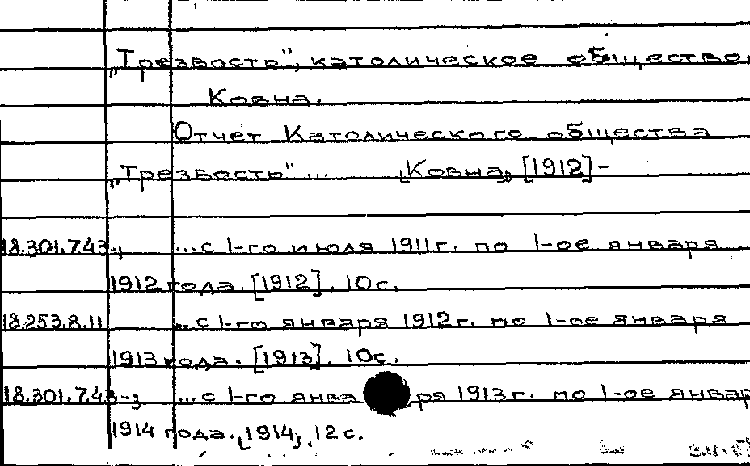 „Трезвость", католическое общество,
Ковна.
Отчет Католического общества
„Трезвость"... [Ковна, [1912]-
18.301.7.43-; ...с 1-го июля 1911г. по 1-ое января
1912 года. [1912]. 10с.
18.253.8.11 ...с 1-го января 1912г. по 1-ое января
1913 года. [1913]. 10с.
18.301.7.43-; ...с 1-го января 1913г. по 1-ое январ
1914 года. [1914], 12с.